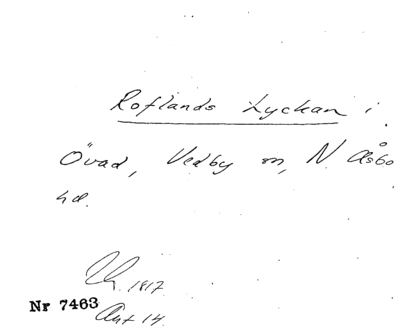 Roflands Lyckan i
Övad, Vedby sn, N Åsbo
hd.
Uk. 1817
Nr 7463
Akt 14